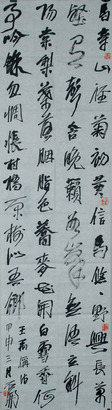 马穿山径菊初黄信马悠悠野兴长万
壑有声含晚籁数峰无语立斜
阳棠梨叶落胭脂色荞麦花开白雪香何
事吟余忽惆怅村桥原树似吾乡
王禹偁诗
甲申三月